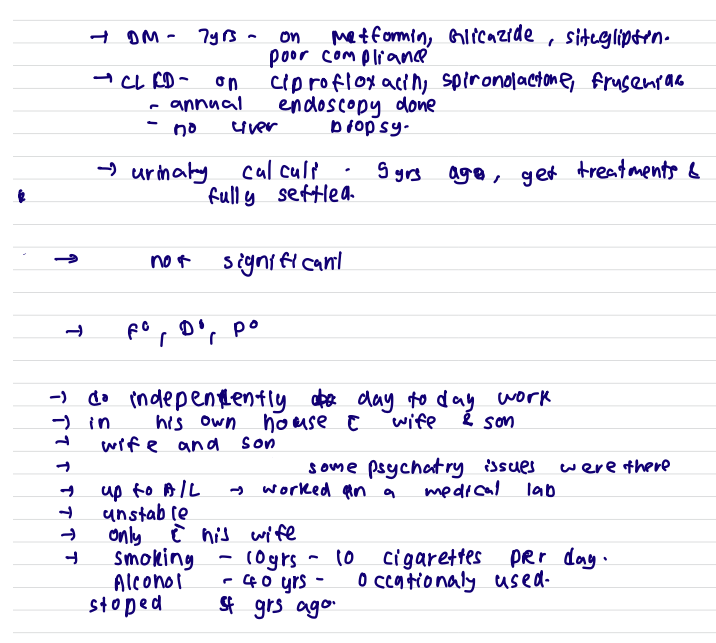 → DM - 7yrs - on metformin, Glicazide, sitegliptin.
poor compliance
→ CLCD - on ciprofloxacin, spironolactone, frusemide
- annual endoscopy done
- no liver biopsy.
→ urinary calculi - 5 yrs ago, get treatments &
fully settled.
→ not significant
→ F⁰, D⁰, P⁰
→ do independently day to day work
→ in his own house c̄ wife & son
→ wife and son
→ some psychatry issues were there
→ up to A/L → worked in a medical lab
→ unstable
→ only c̄ his wife
→ smoking - 10yrs - 10 cigarettes per day.
Alcohol - 40 yrs - Occationaly used.
stoped yrs ago.